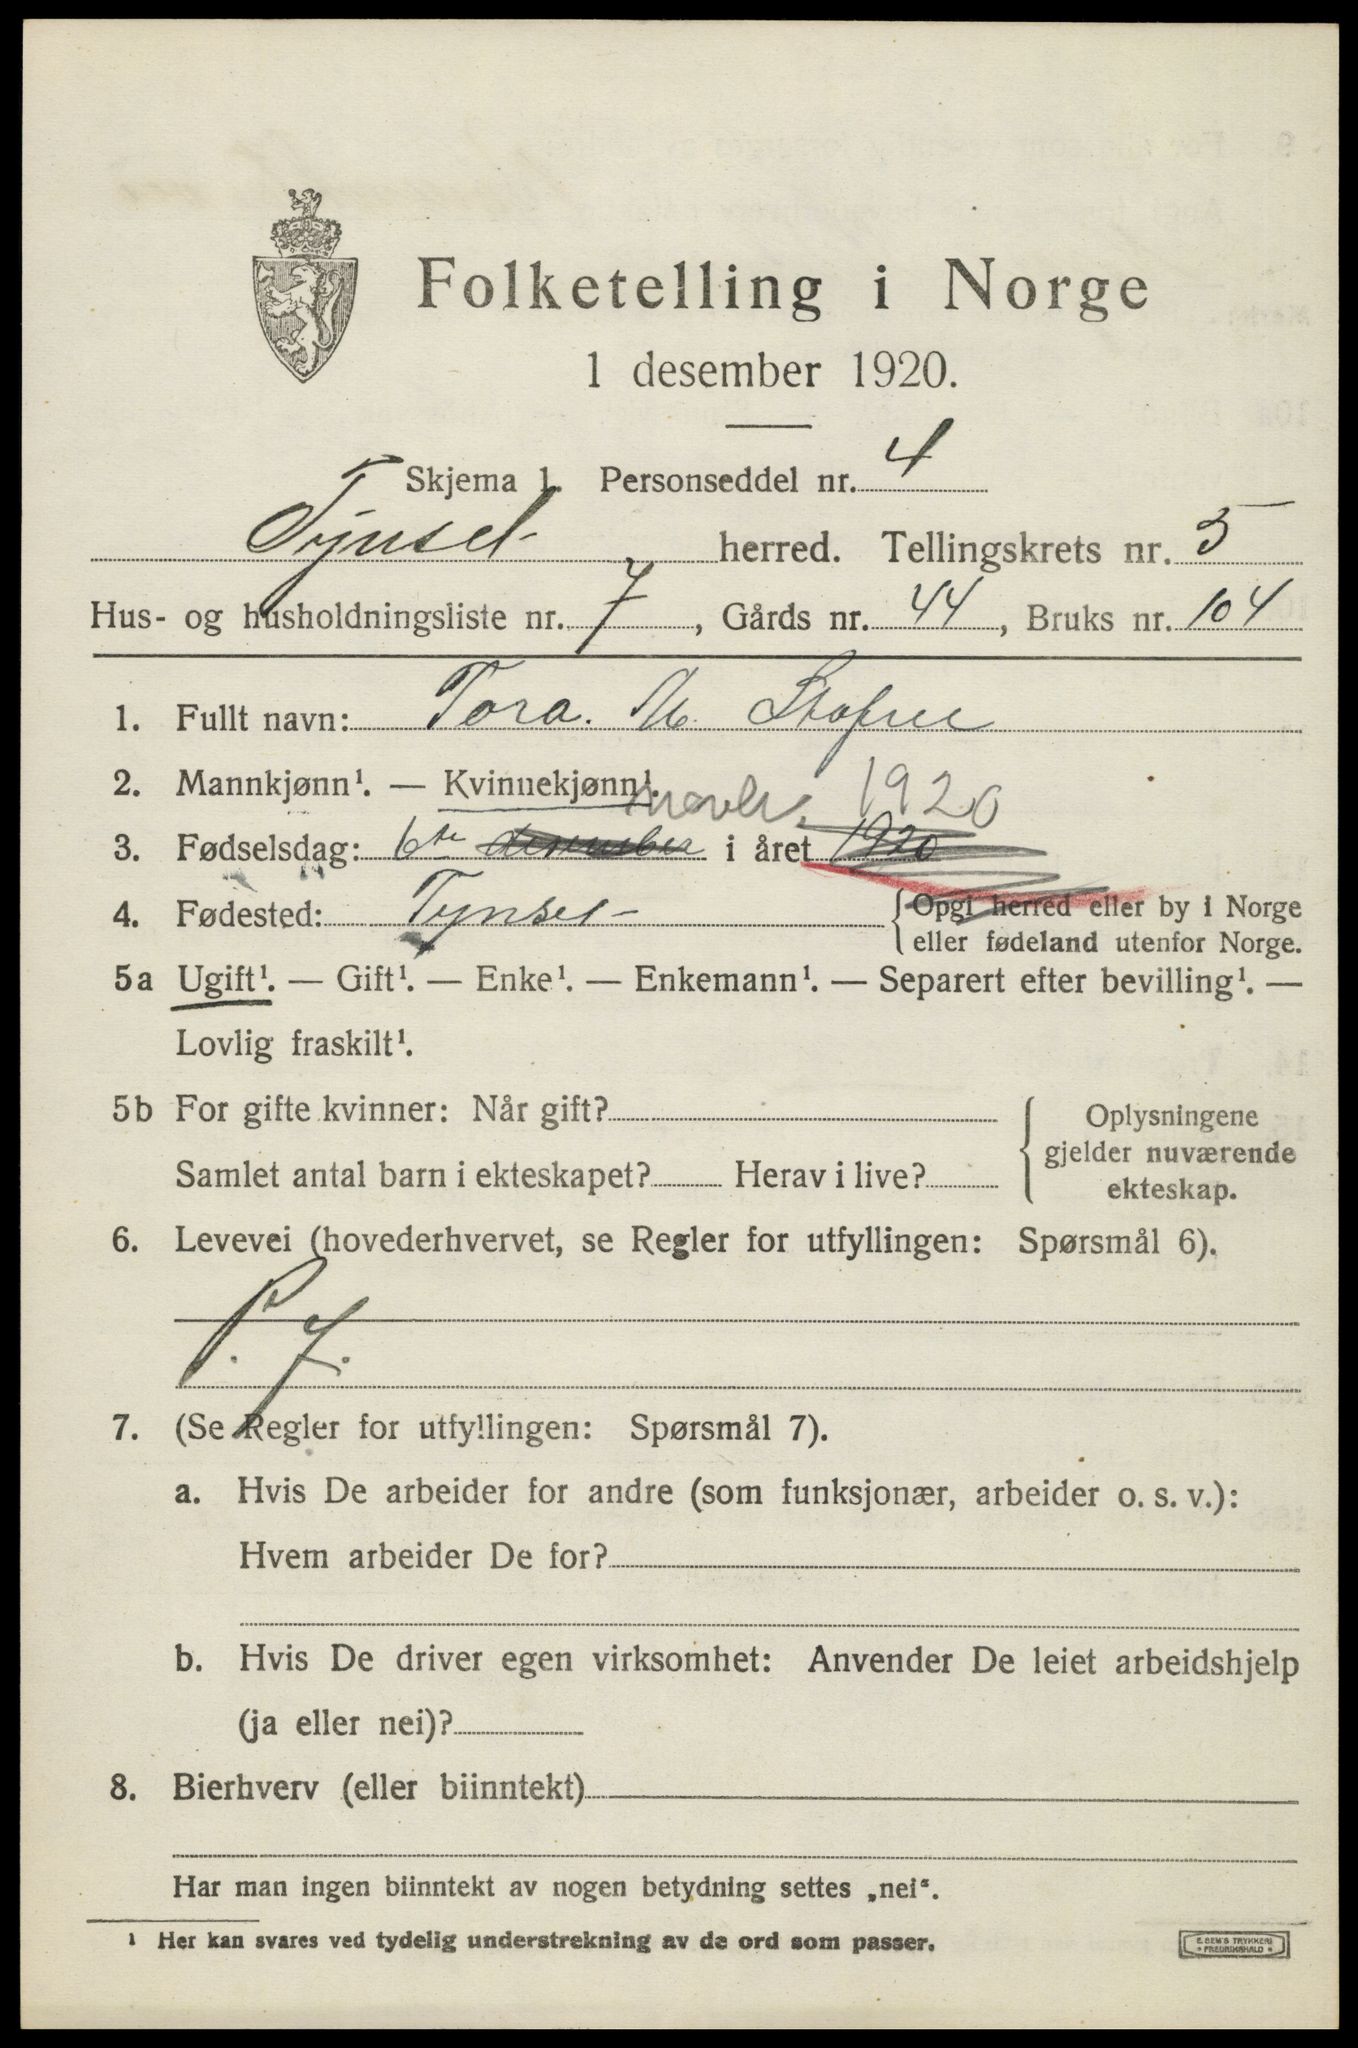 Folketelling i Norge
1 desember 1920.
Skjema 1. Personseddel nr. 4
Tynset herred. Tellingskrets nr. 5
Hus- og husholdningsliste nr. 7, Gårds nr. 44, Bruks nr. 104
1. Fullt navn: Tora. M.
2. Mannkjønn¹. — Kvinnekjønn¹.
novbr. 1920
3. Fødselsdag: 6te desember i året 1920
4. Fødested: Tynset {Opgi herred eller by i Norge
eller fødeland utenfor Norge.
5a Ugift¹. — Gift¹. — Enke¹. — Enkemann¹. — Separert efter bevilling¹. —
Lovlig fraskilt¹.
5b For gifte kvinner: Når gift? { Oplysningene
gjelder nuværende
Samlet antal barn i ekteskapet? Herav i live? ekteskap.
6. Levevei (hovederhvervet, se Regler for utfyllingen: Spørsmål 6).
7. (Se Regler for utfyllingen: Spørsmål 7).
a. Hvis De arbeider for andre (som funksjonær, arbeider o. s. v.):
Hvem arbeider De for?
b. Hvis De driver egen virksomhet: Anvender De leiet arbeidshjelp
(ja eller nei)?
8. Bierhverv (eller biinntekt)
Har man ingen biinntekt av nogen betydning settes „nei“.
¹ Her kan svares ved tydelig understrekning av de ord som passer.
E. SEM'S TRYKKERI
* FREDRIKSHALD *